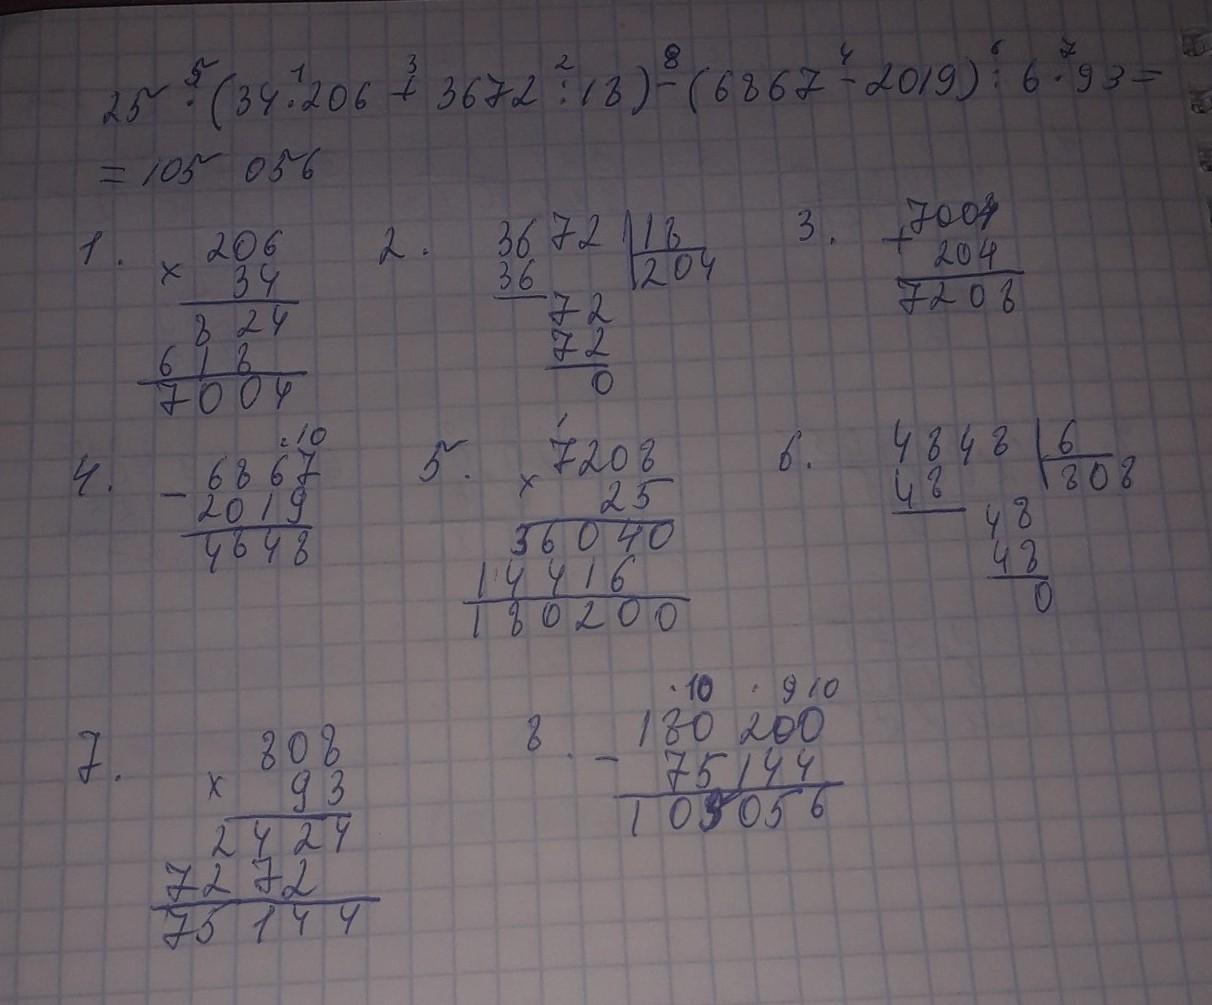 5 1 3 2 8 4 6 7
25 · (34 · 206 + 3672 : 18) - (6867 - 2019) : 6 · 93 =
= 105 056
1. 206
× 34
824
618
7004
2. 3672 | 18
36 204
72
72
0
3. 7004
+ 204
7208
4. . 10
- 6867
2019
4848
5. 1
7208
× 25
36040
14416
180200
6. 4848 | 6
48 808
48
48
0
7. 808
× 93
2424
7272
75144
8. . 10 . 9 10
- 180 200
75 144
105 056